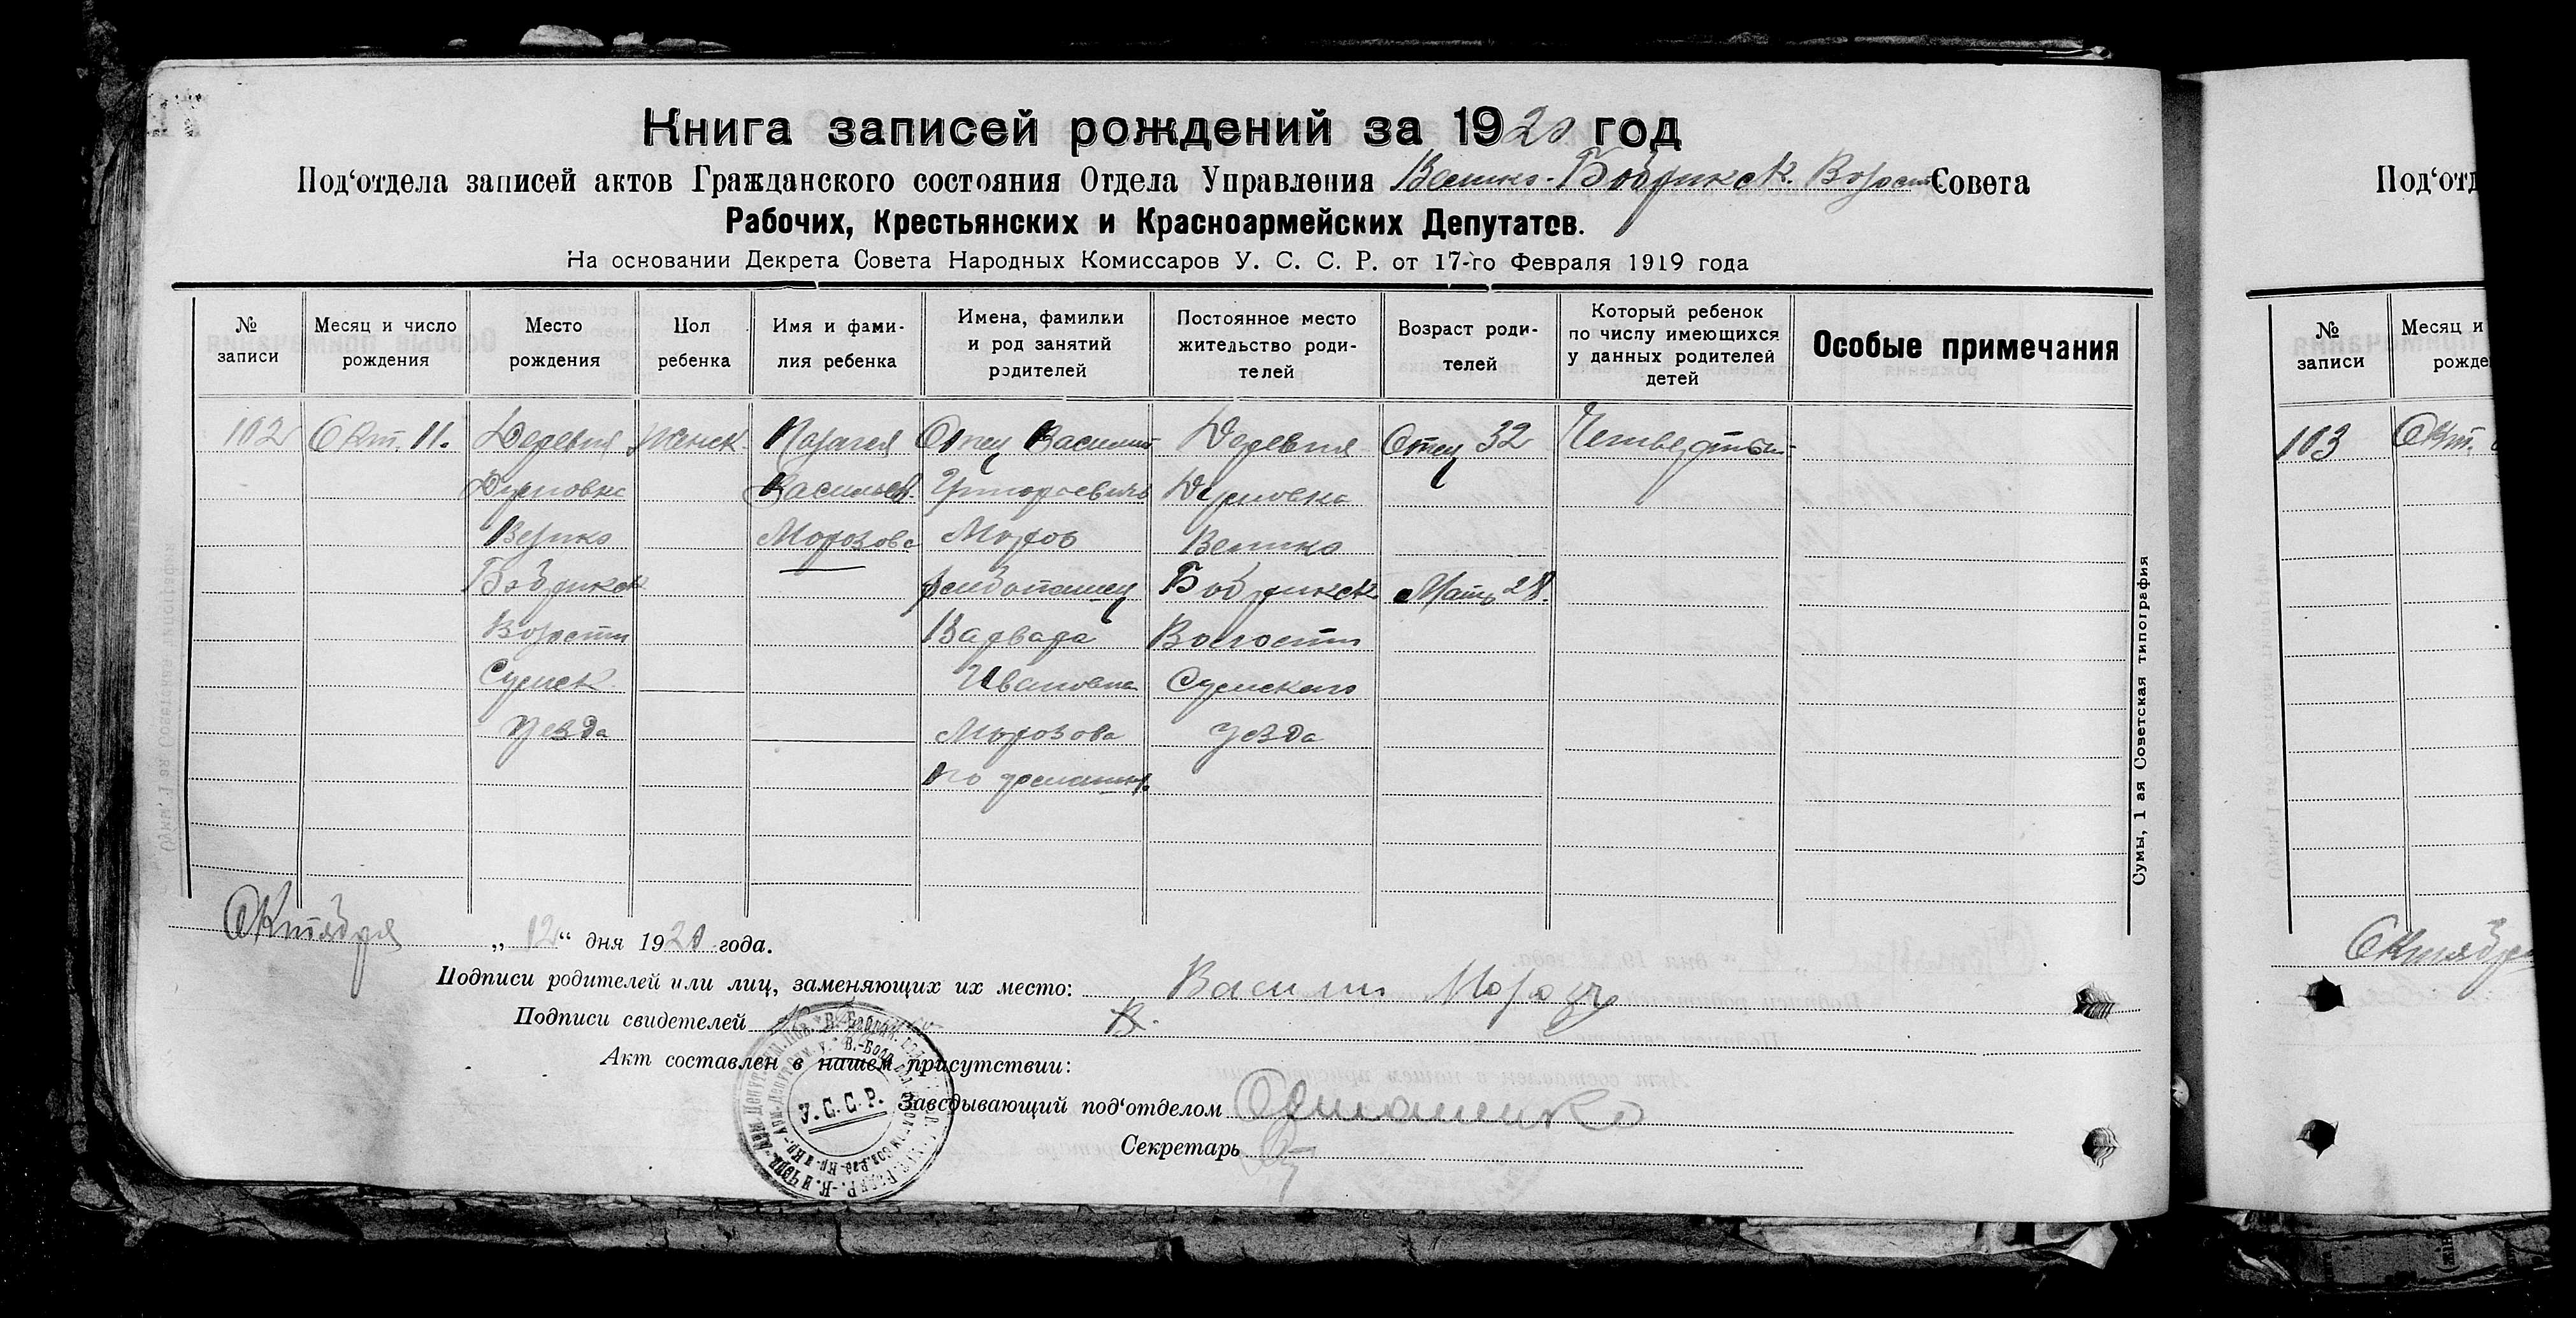 Книга записей рождений за 1920 год
Под‘отдела записей актов Гражданского состояния Отдела Управления Велико-Бобрикск. Волост. Совета
Рабочих, Крестьянских и Красноармейских Депутатов.
На основании Декрета Совета Народных Комиссаров У. С. С. Р. от 17-го Февраля 1919 года
№ записи
Месяц и число рождения
Место рождения
Пол ребенка
Имя и фами-
лия ребенка
Имена, фамилии
и род занятий
родителей
Постоянное место
жительство роди-
телей
Возраст роди-
телей
Который ребенок
по числу имеющихся
у данных родителей
детей
Особые примечания
102 Окт. 11. Деревня Женск. Парагея Отец Василий Деревня Отец 32 Четвертый
Васильев. Григорьевичъ
Велико Морозова Мороз Велико
Бобрикск. Бобрикск Мать 28.
Волости Варвара Волости
Сумск. Ивановна Сумскаго
Уезда Морозова Уезда
по домашн.
Октября „12“ дня 1920 года.
Подписи родителей или лиц, заменяющих их место: Василий Мороз
Подписи свидетелей
Акт составлен в нашем присутствии:
У.С.С.Р.
Заведывающий под‘отделом
Секретарь
Сумы, 1 ая Советская типография
Под‘отд
№ записи
Месяц и
рожде
103 Окт.
Октября